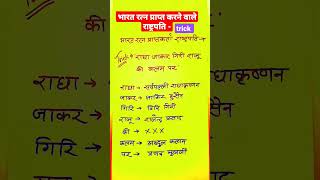 भारत रत्न प्राप्त करने वाले
राष्ट्रपति - trick
भारत रत्न प्राप्तकर्ता राष्ट्रपति→
Trick→ राधा जाकर गिरी राजू
की कलम पर
राधा → सर्वपल्ली राधाकृष्णन
जाकर → जाकिर हुसैन
गिरि → गिरि
राजू → राजेन्द्र प्रसाद
की → XXX
कलम → अब्दुल कलाम
पर → प्रणव मुखर्जी